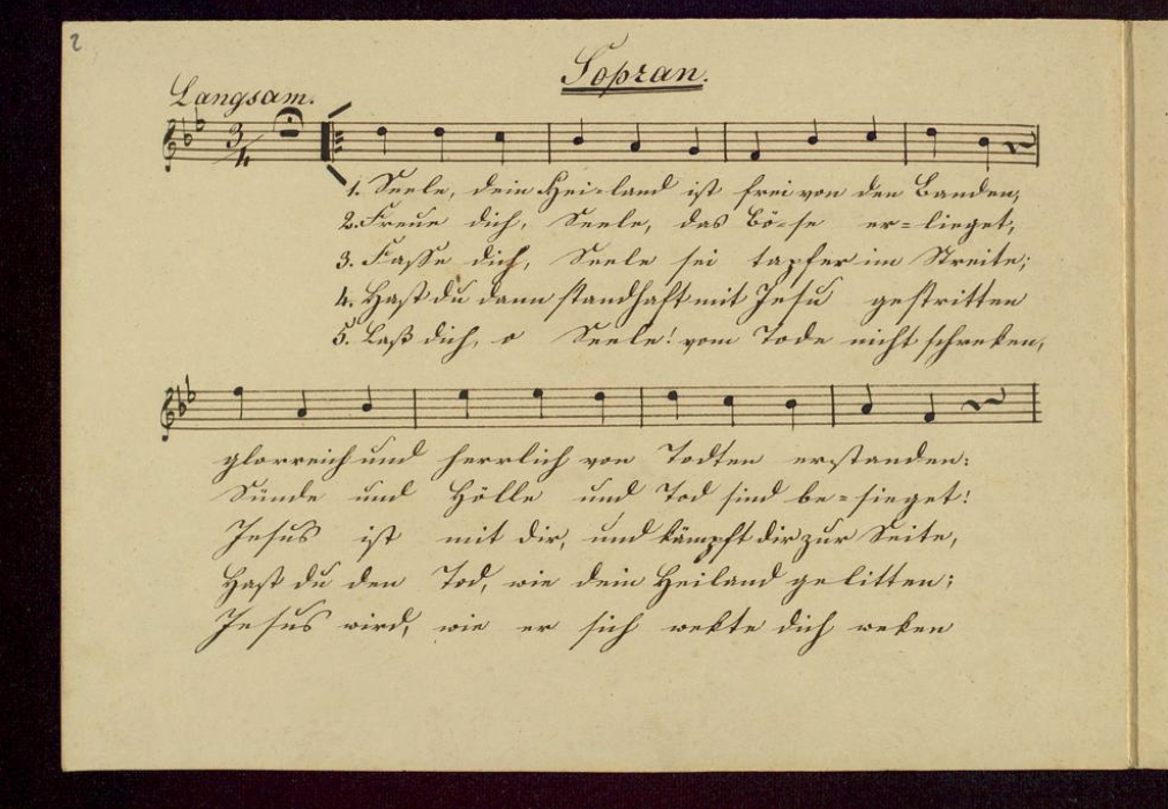 2
Sopran.
Langsam.
3/4
1. Seele, dein Hei-land ist frei von den Banden,
2. Freue dich, Seele, das Bö-se er-lieget,
3. Fasse dich, Seele sei tapfer im Streite;
4. Hast du dann standhaft mit Jesu gestritten
5. Laß dich, o Seele! vom Tode nicht schreken,
glorreich und herrlich von Todten erstanden:
Sünde und Hölle und Tod sind be-sieget!
Jesus ist mit dir, und kämpft dir zur Seite,
Hast du den Tod, wie dein Heiland gelitten;
Jesus wird, wie er sich wekte dich weken